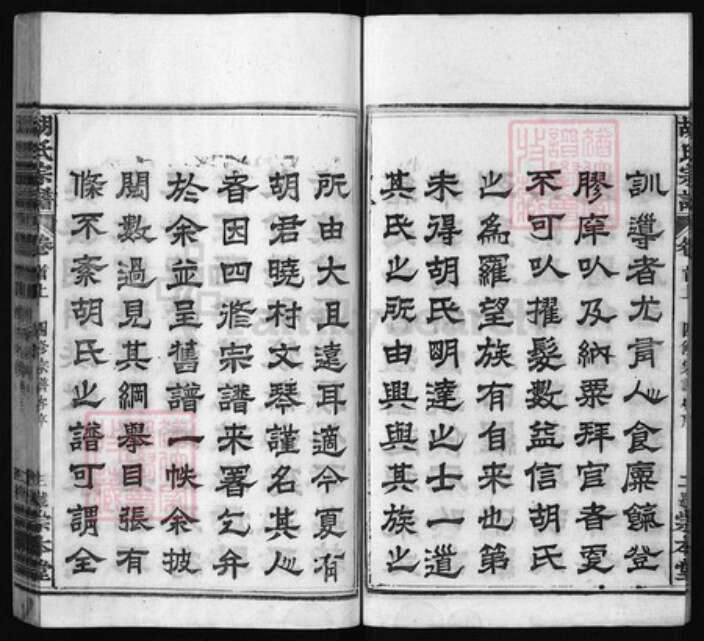 訓導者尤肩人食廩餼登
膠庠㕥及納粟拜官者更
不可㕥擢髮數益信胡氏
之爲羅望族有自来也第
未得胡氏明達之士一道
其氏之所由興與其族之
所由大且遠耳適今夏有
胡君曉村文琴謹名其人
者因四修宗譜来署乞弁
於余並呈舊譜一帙余披
閱數過見其綱舉目張有
條不紊胡氏之譜可謂全
胡氏宗譜 卷首上 四修宗譜序